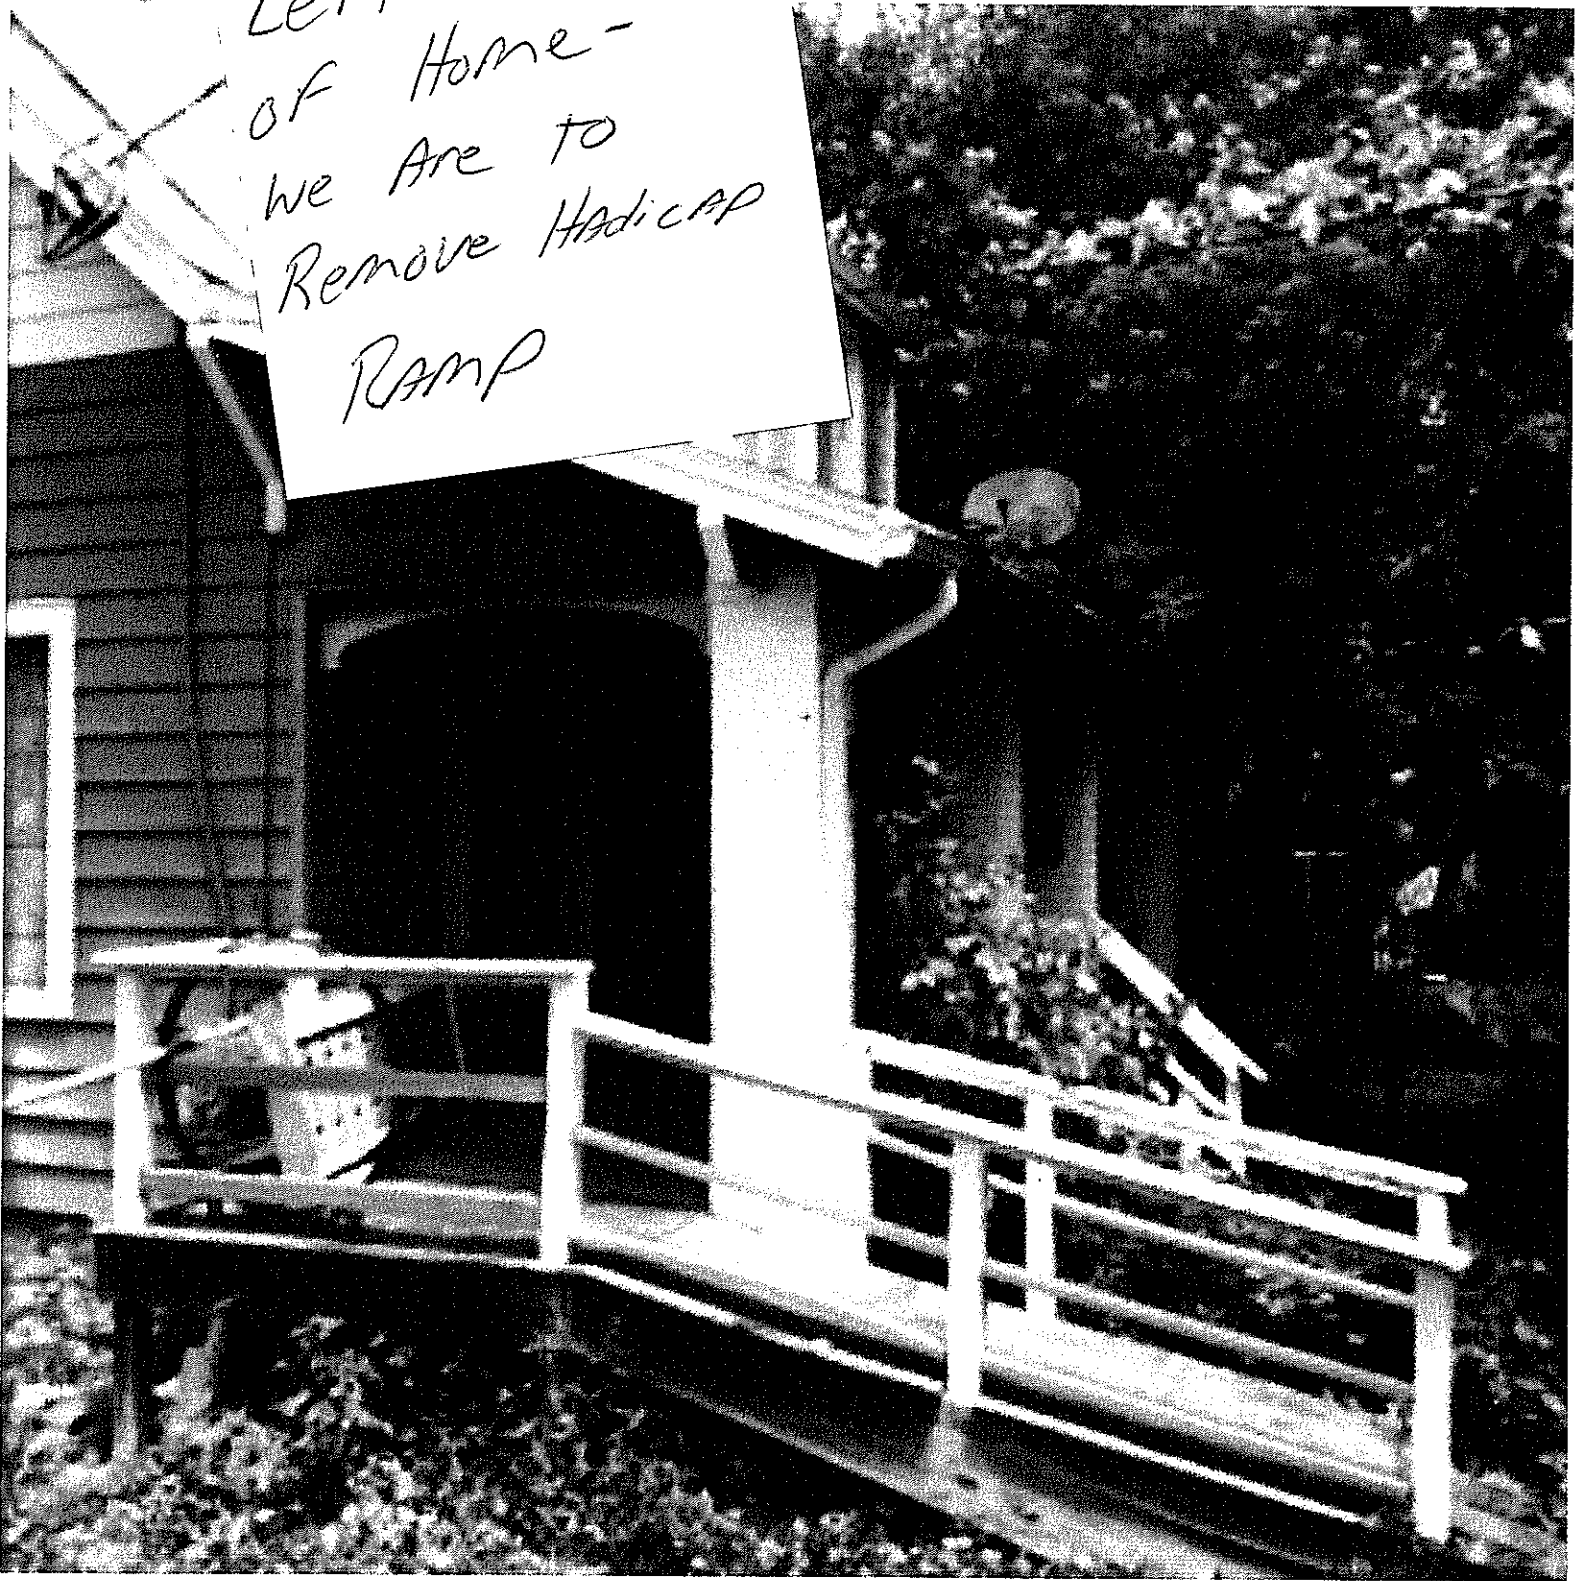 of Home-
we Are to
Remove HAdicAP
RAMP